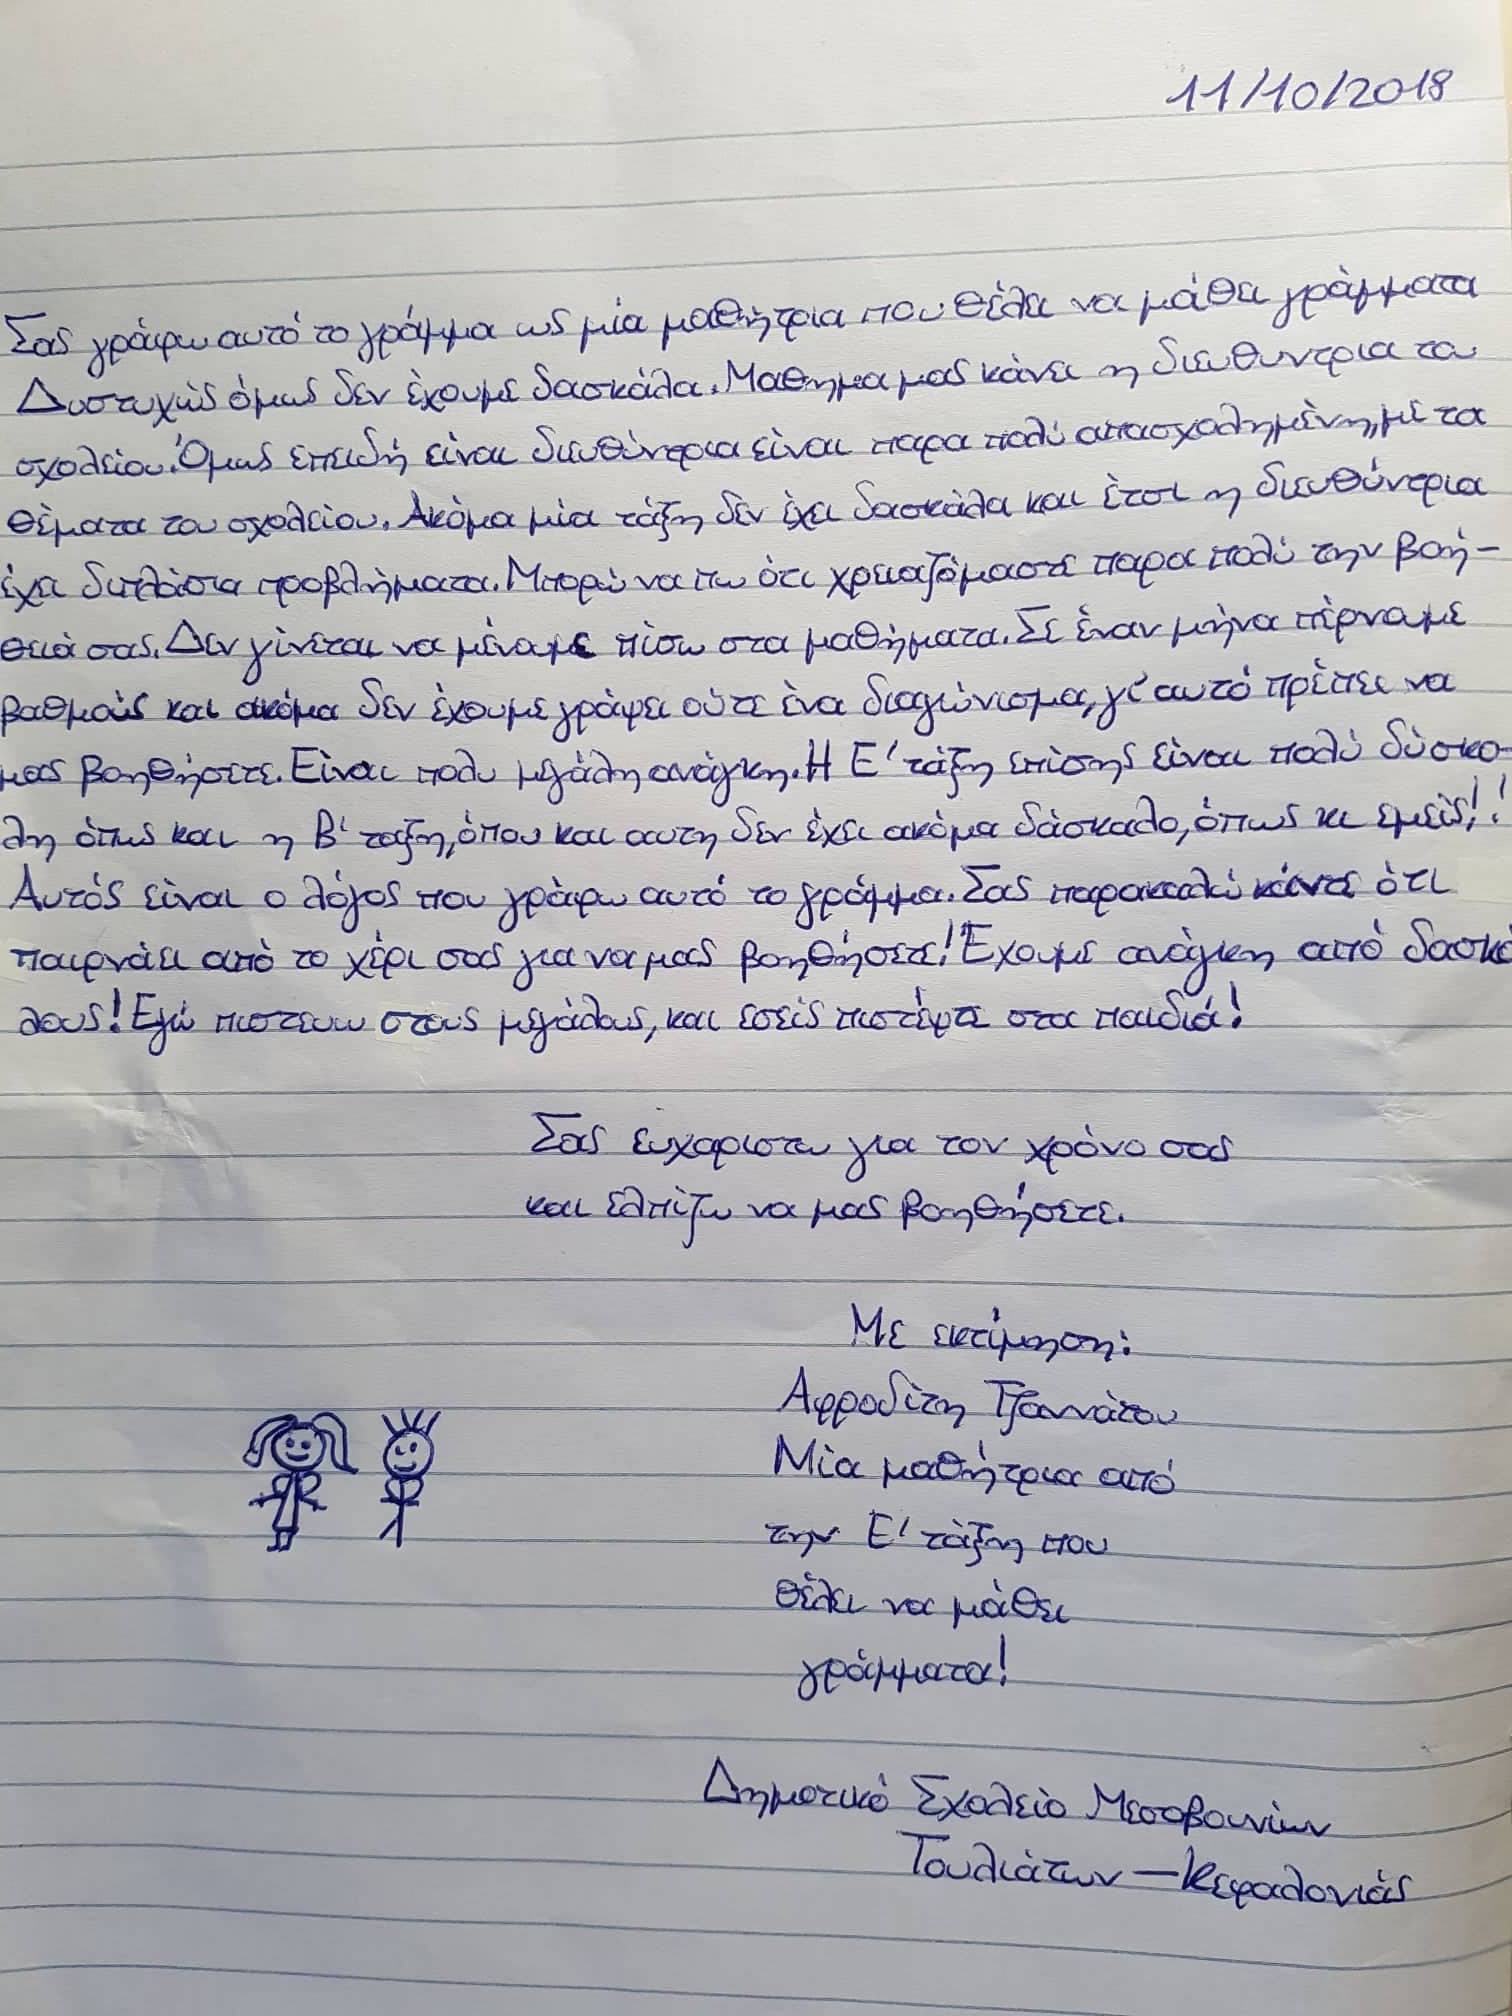 11/10/2018
Σας γράφω αυτό το γράμμα ως μία μαθήτρια που θέλει να μάθει γράμματα
Δυστυχώς όμως δεν έχουμε δασκάλα. Μαθημα μας κάνει η διευθυντρια του
σχολείου. Όμως επειδή είναι διευθύντρια είναι παρα πολύ απασχολημένη, με τα
θέματα του σχολείου. Ακόμα μία τάξη δεν έχει δασκάλα και έτσι η διευθύντρια
έχει διπλάσια προβλήματα. Μπορώ να πω ότι χρειαζόμαστε παρα πολύ την βοή-
θειά σας. Δεν γίνεται να μένουμε πίσω στα μαθήματα. Σε έναν μήνα πέρναμε
βαθμούς και ακόμα δεν έχουμε γράψει ούτε ένα διαγώνισμα, γι' αυτό πρέπει να
μας βοηθήσετε. Είναι πολυ μεγάλη ανάγκη. Η Ε' τάξη επίσης είναι πολύ δύσκο-
λη όπως και η Β' ταξη, όπου και αυτη δεν έχει ακόμα δάσκαλο, όπως κι εμείς!!
Αυτός είναι ο λόγος που γράφω αυτό το γράμμα. Σας παρακαλώ κάντε ότι
παιρνάει από το χέρι σας για να μας βοηθήσετε! Έχουμε ανάγκη από δασκά
λους! Εγώ πιστευω στους μεγάλους, και εσείς πιστέψτε στα παιδιά!
Σας ευχαριστω για τον χρόνο σας
και ελπίζω να μας βοηθήσετε.
Με εκτίμηση:
Αφροδίτη Τζαννάτου
Μία μαθήτρια από
την Ε' τάξη που
θέλει να μάθει
γράμματα!
Δημοτικό Σχολείο Μεσοβουνίων
Τουλιάτων — Κεφαλονιάς